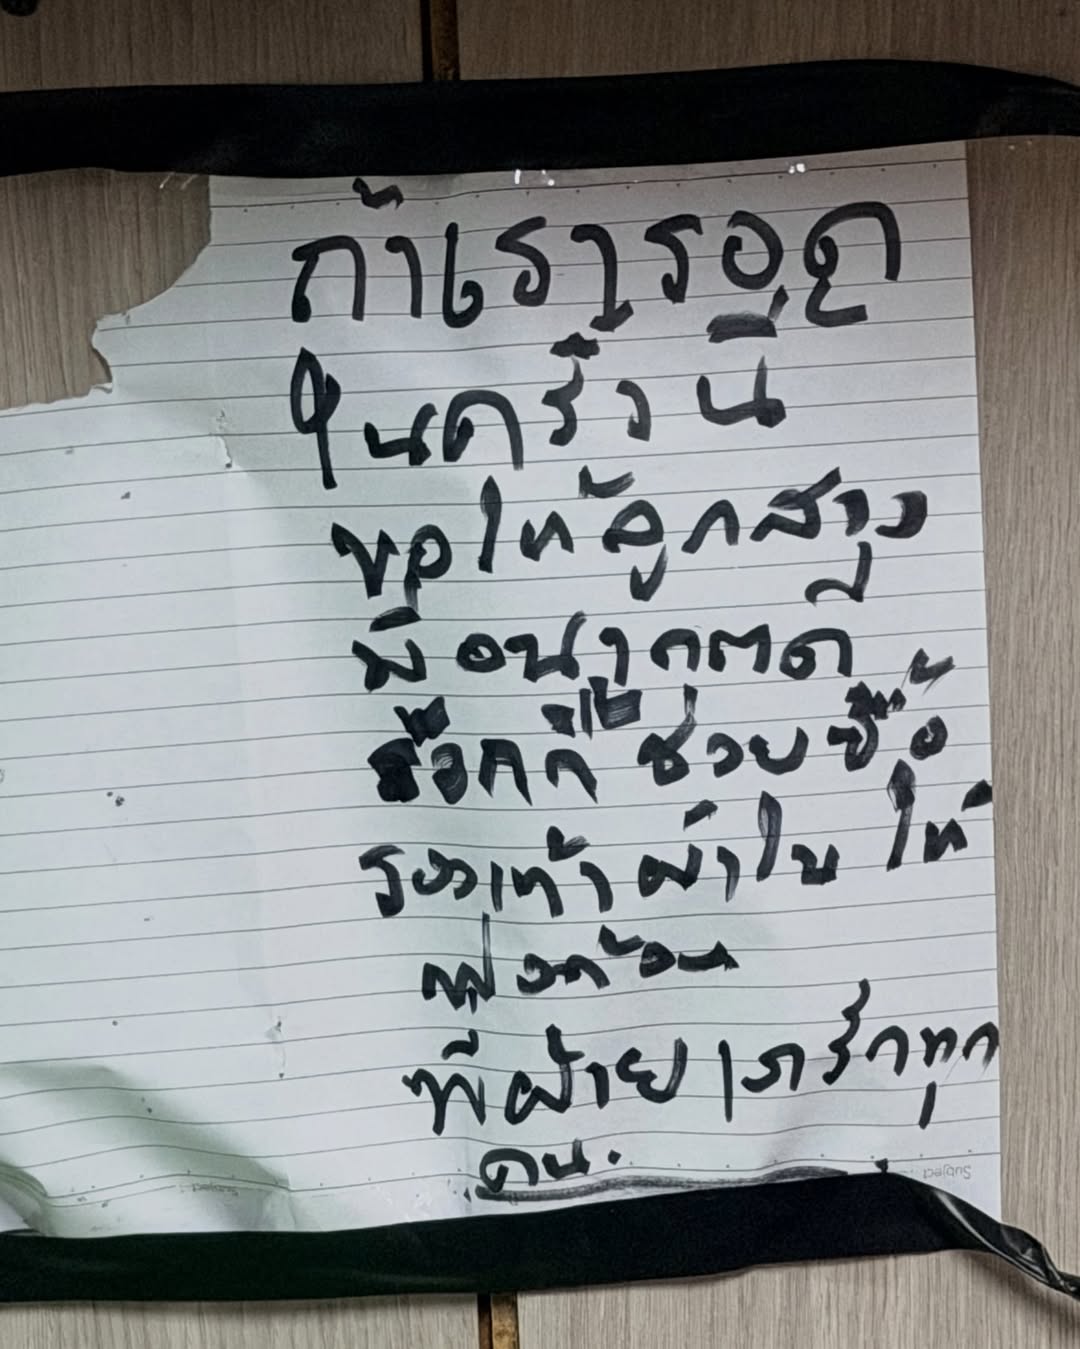 ถ้าเรารอด
ในคร้างนี้
ขอให้ลูกสาว
มีอนาคตดี
ช่วยซื้อ
รองเท้าผ้าใบ ให้
น้อง
พี่ฝ้าย เรารักทุก
คน.
Subject
Subject